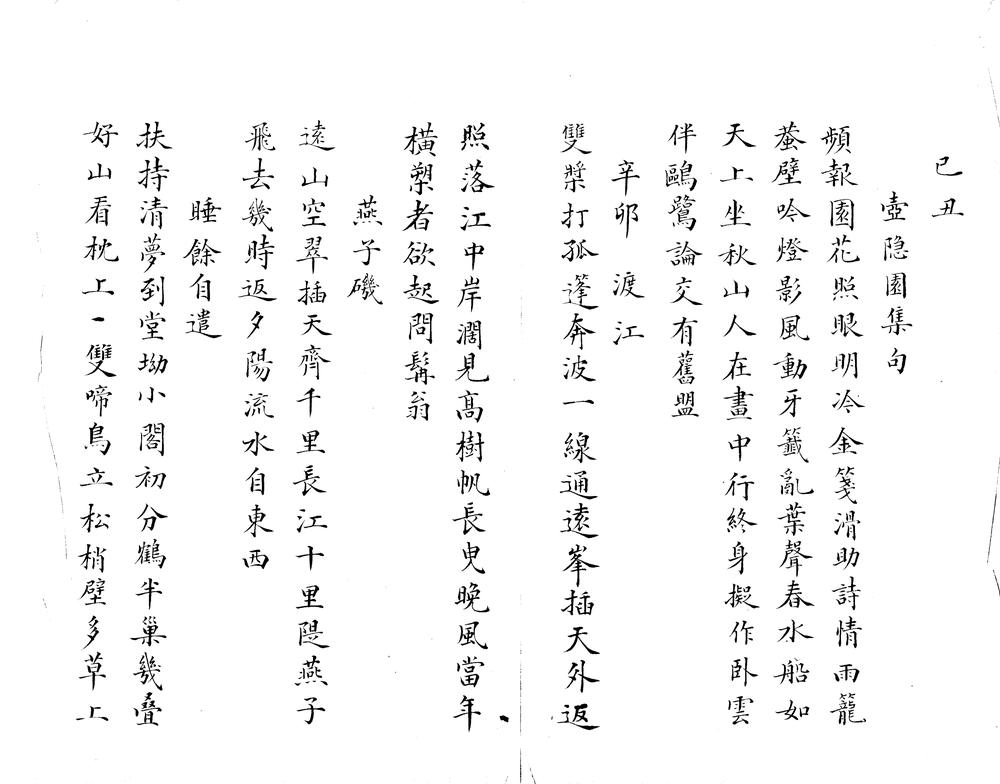 己丑
壺隐園集句
頻報園花照眼明冷金箋滑助詩情雨籠
蛬壁吟燈影風動牙籤亂葉聲春水船如
天上坐秋山人在畫中行終身擬作卧雲
伴鷗鷺論交有舊盟
辛卯 渡江
雙槳打孤篷奔波一線通遠峯插天外返
照落江中岸濶見高樹帆長曳晚風當年
橫槊者欲起問髯翁
燕子磯
遠山空翠插天齊千里長江十里隄燕子
飛去幾時返夕陽流水自東西
睡餘自遣
扶持清夢到堂坳小閣初分鶴半巢幾疊
好山看枕上一雙啼鳥立松梢壁多草上